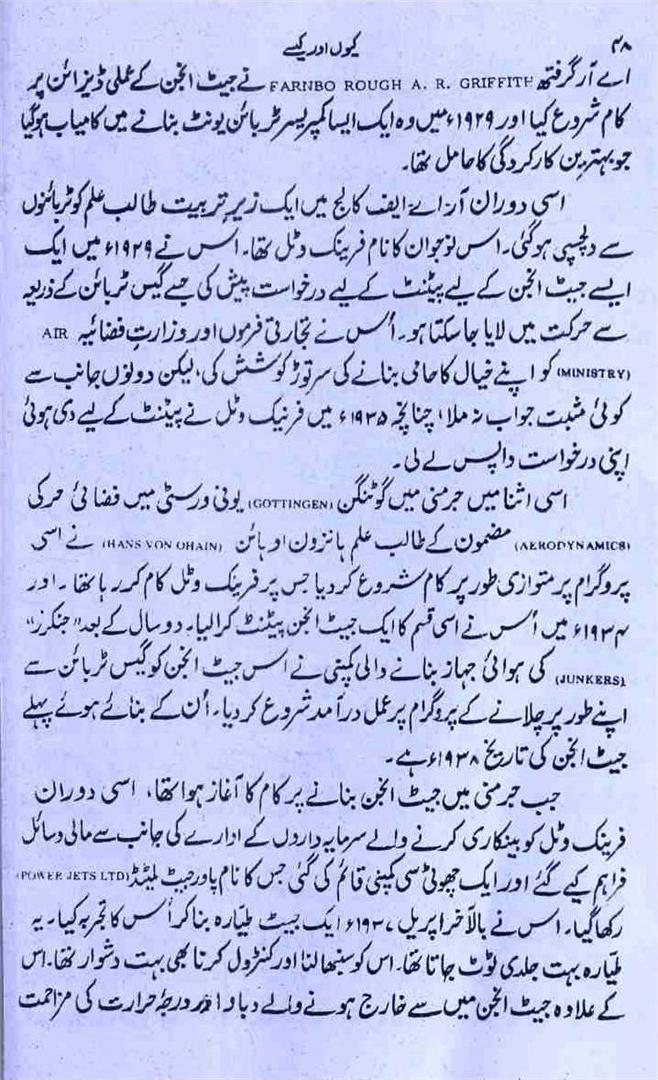 ۴۸ کیوں اور کیسے
اے آر گرفتھ FARNBO ROUGH A. R. GRIFFITH نے جیٹ انجن کے عملی ڈیزائن پر
کام شروع کیا اور ۱۹۲۹ء میں وہ ایک ایسا کمپریسر ٹربائن یونٹ بنانے میں کامیاب ہوگیا
جو بہترین کارکردگی کا حامل تھا۔
اسی دوران آر۔اے۔ایف کالج میں ایک زیرِ تربیت طالب علم کو ٹربائنوں
سے دلچسپی ہوگئی۔ اس نوجوان کا نام فرینک وٹل تھا۔ اس نے ۱۹۲۹ء میں ایک
ایسے جیٹ انجن کے لیے پیٹنٹ کے لیے درخواست پیش کی جسے گیس ٹربائن کے ذریعہ
سے حرکت میں لایا جاسکتا ہو۔ اُس نے تجارتی فرموں اور وزارتِ فضائیہ AIR
(MINISTRY) کو اپنے خیال کا حامی بنانے کی سرتوڑ کوشش کی، لیکن دونوں جانب سے
کوئی مثبت جواب نہ ملا، چنانچہ ۱۹۳۵ء میں فرنیک وٹل نے پیٹنٹ کے لیے دی ہوئی
اپنی درخواست واپس لے لی۔
اسی اثنا میں جرمنی میں گوٹنگن (GOTTINGEN) یونی ورسٹی میں فضائی حرکی
(AERODYNAMICS) مضمون کے طالب علم ہانزون اوہائن (HANS VON OHAIN) نے اسی
پروگرام پر متوازی طور پر کام شروع کردیا جس پر فرینک وٹل کام کررہا تھا۔ اور
۱۹۳۴ء میں اُس نے اسی قسم کا ایک جیٹ انجن پیٹنٹ کرالیا۔ دو سال کے بعد "جنکرز"
(JUNKERS) کی ہوائی جہاز بنانے والی کمپنی نے اس جیٹ انجن کو گیس ٹربائن سے
اپنے طور پر چلانے کے پروگرام پر عمل درآمد شروع کردیا۔ اُن کے بنائے ہوئے پہلے
جیٹ انجن کی تاریخ ۱۹۳۸ء ہے۔
جب جرمنی میں جیٹ انجن بنانے پر کام کا آغاز ہوا تھا، اسی دوران
فرینک وٹل کو بینکاری کرنے والے سرمایہ داروں کے ادارے کی جانب سے مالی وسائل
فراہم کیے گئے اور ایک چھوٹی سی کمپنی قائم کی گئی جس کا نام پاور جیٹ لمیٹڈ (POWER JETS LTD)
رکھا گیا۔ اس نے بالآخر اپریل ۱۹۳۷ء ایک جیٹ طیّارہ بناکر اُس کا تجربہ کیا۔ یہ
طیّارہ بہت جلدی ٹوٹ جاتا تھا۔ اس کو سنبھالنا اور کنٹرول کرنا بھی بہت دشوار تھا۔ اس
کے علاوہ جیٹ انجن میں سے خارج ہونے والے دباو اور درجۂ حرارت کی مزاحمت